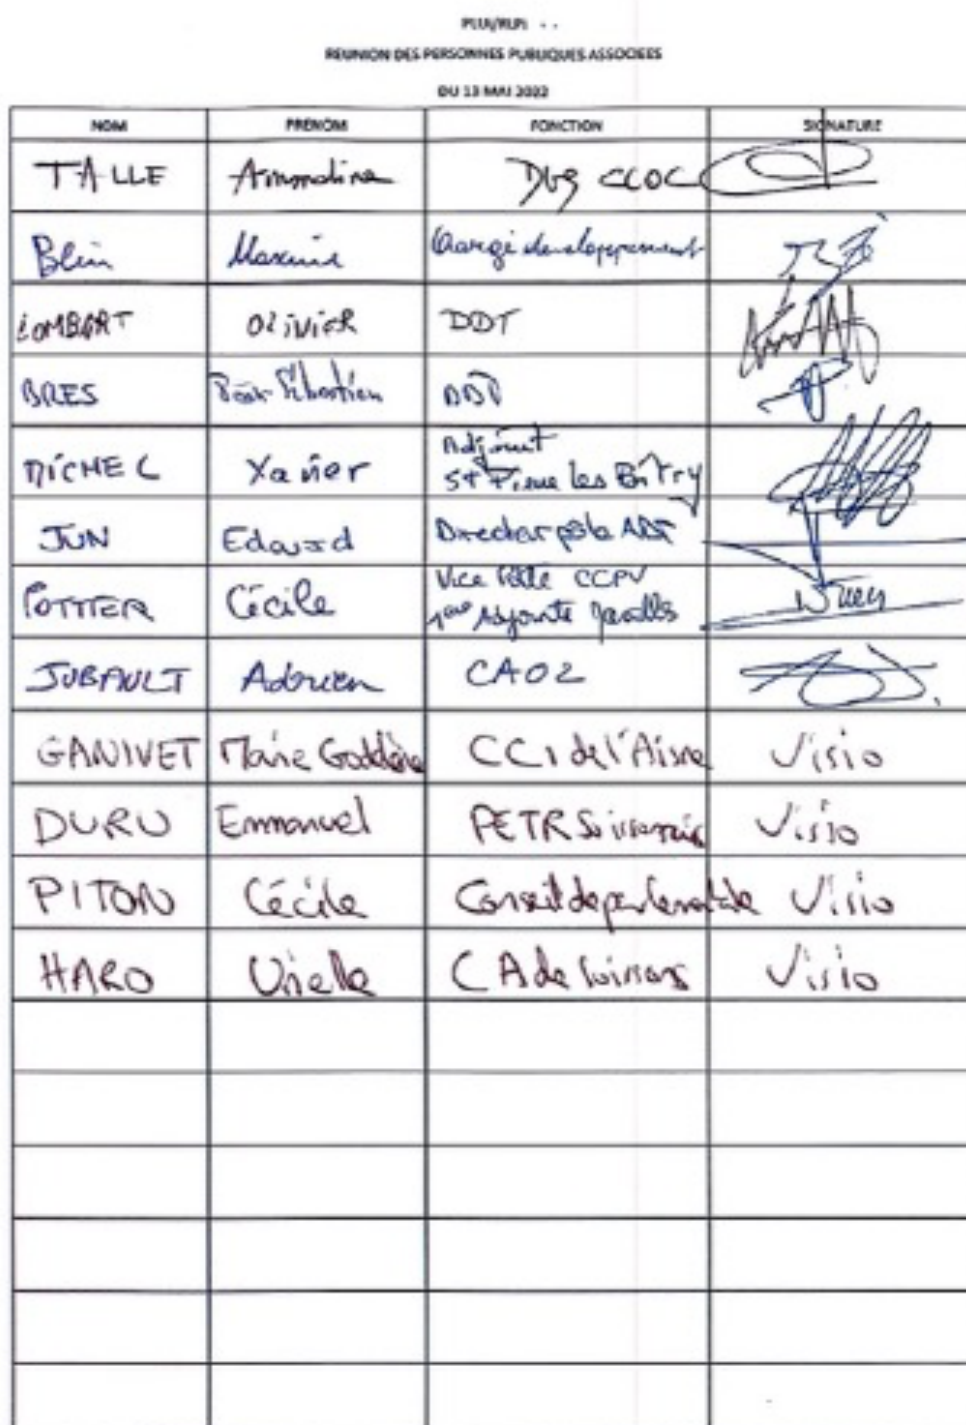 PLUi/RLPi
REUNION DES PERSONNES PUBLIQUES ASSOCIEES
DU 13 MAI 2022
NOM PRÉNOM FONCTION SIGNATURE
TALLE CCOC
Blin Maxime Chargé developpement
LOMBART OLIVIER DDT
BRES Sébastien DDT
MICHEL Xavier Adjoint
St Pierre les Bitry
JUN Edouard Directeur pôle
POTTIER Cécile Vice CCPV
1ère Adjointe
JUBAULT Adrien CA02
GANIVET Marie CCI de l'Aisne Visio
DURU Emmanuel PETR Soissonnais Visio
PITON Cécile Conseil departemental de Visio
HARO Urielle CA de Soissons Visio